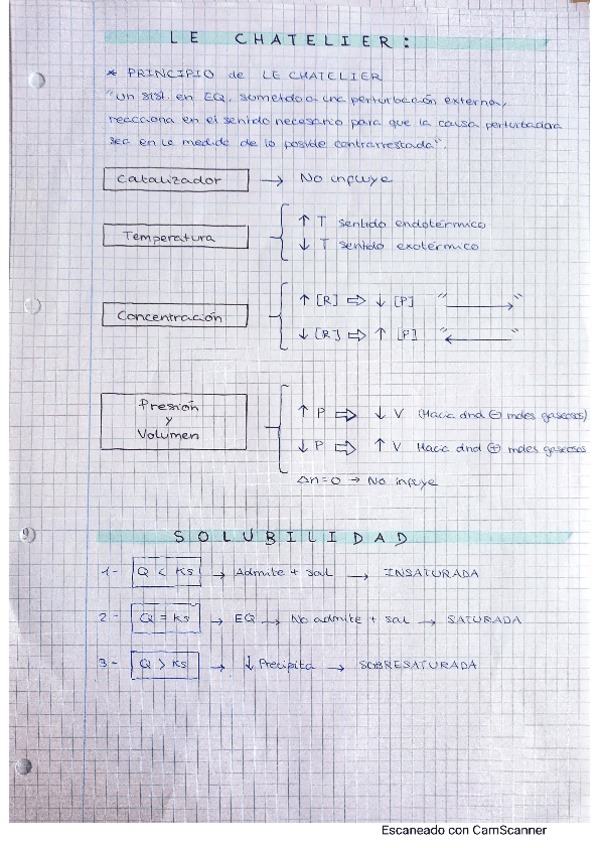 LE CHATELIER:
* PRINCIPIO de LE CHATELIER
"un sist. en EQ. sometido a una perturbación externa,
reacciona en el sentido necesario para que la causa perturbadora
sea en la medida de lo posible contrarrestada".
Catalizador → No influye
Temperatura
↑ T sentido endotérmico
↓ T sentido exotérmico
Concentración
↑ [R] ⇒ ↓ [P] "→"
↓ [R] ⇒ ↑ [P] "←"
Presión
y
Volumen
↑ P ⇒ ↓ V (Hacia dnd ⊖ moles gaseosos)
↓ P ⇒ ↑ V Hacia dnd ⊕ moles gaseosos
Δn=0 → No influye
SOLUBILIDAD
1- Q < Ks → Admite + sal → INSATURADA
2- Q = Ks → EQ → No admite + sal → SATURADA
3- Q > Ks → ↓ Precipita → SOBRESATURADA
Escaneado con CamScanner